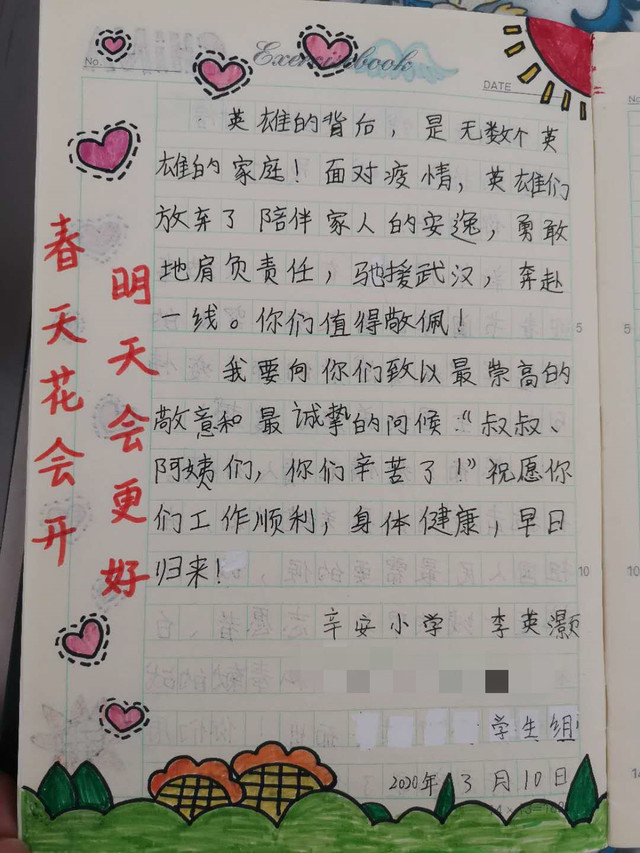 No.
Exercise book
DATE
英雄的背后，是无数个英
雄的家庭！面对疫情，英雄们
放弃了陪伴家人的安逸，勇敢
地肩负责任，驰援武汉，奔赴
一线。你们值得敬佩！
我要向你们致以最崇高的
敬意和最诚挚的问候“叔叔、
阿姨们，你们辛苦了！”祝愿你
们工作顺利，身体健康，早日
归来！
辛安小学 李英灏
学生组
2020年 3月10日
春天花会开
明天会更好
5
10